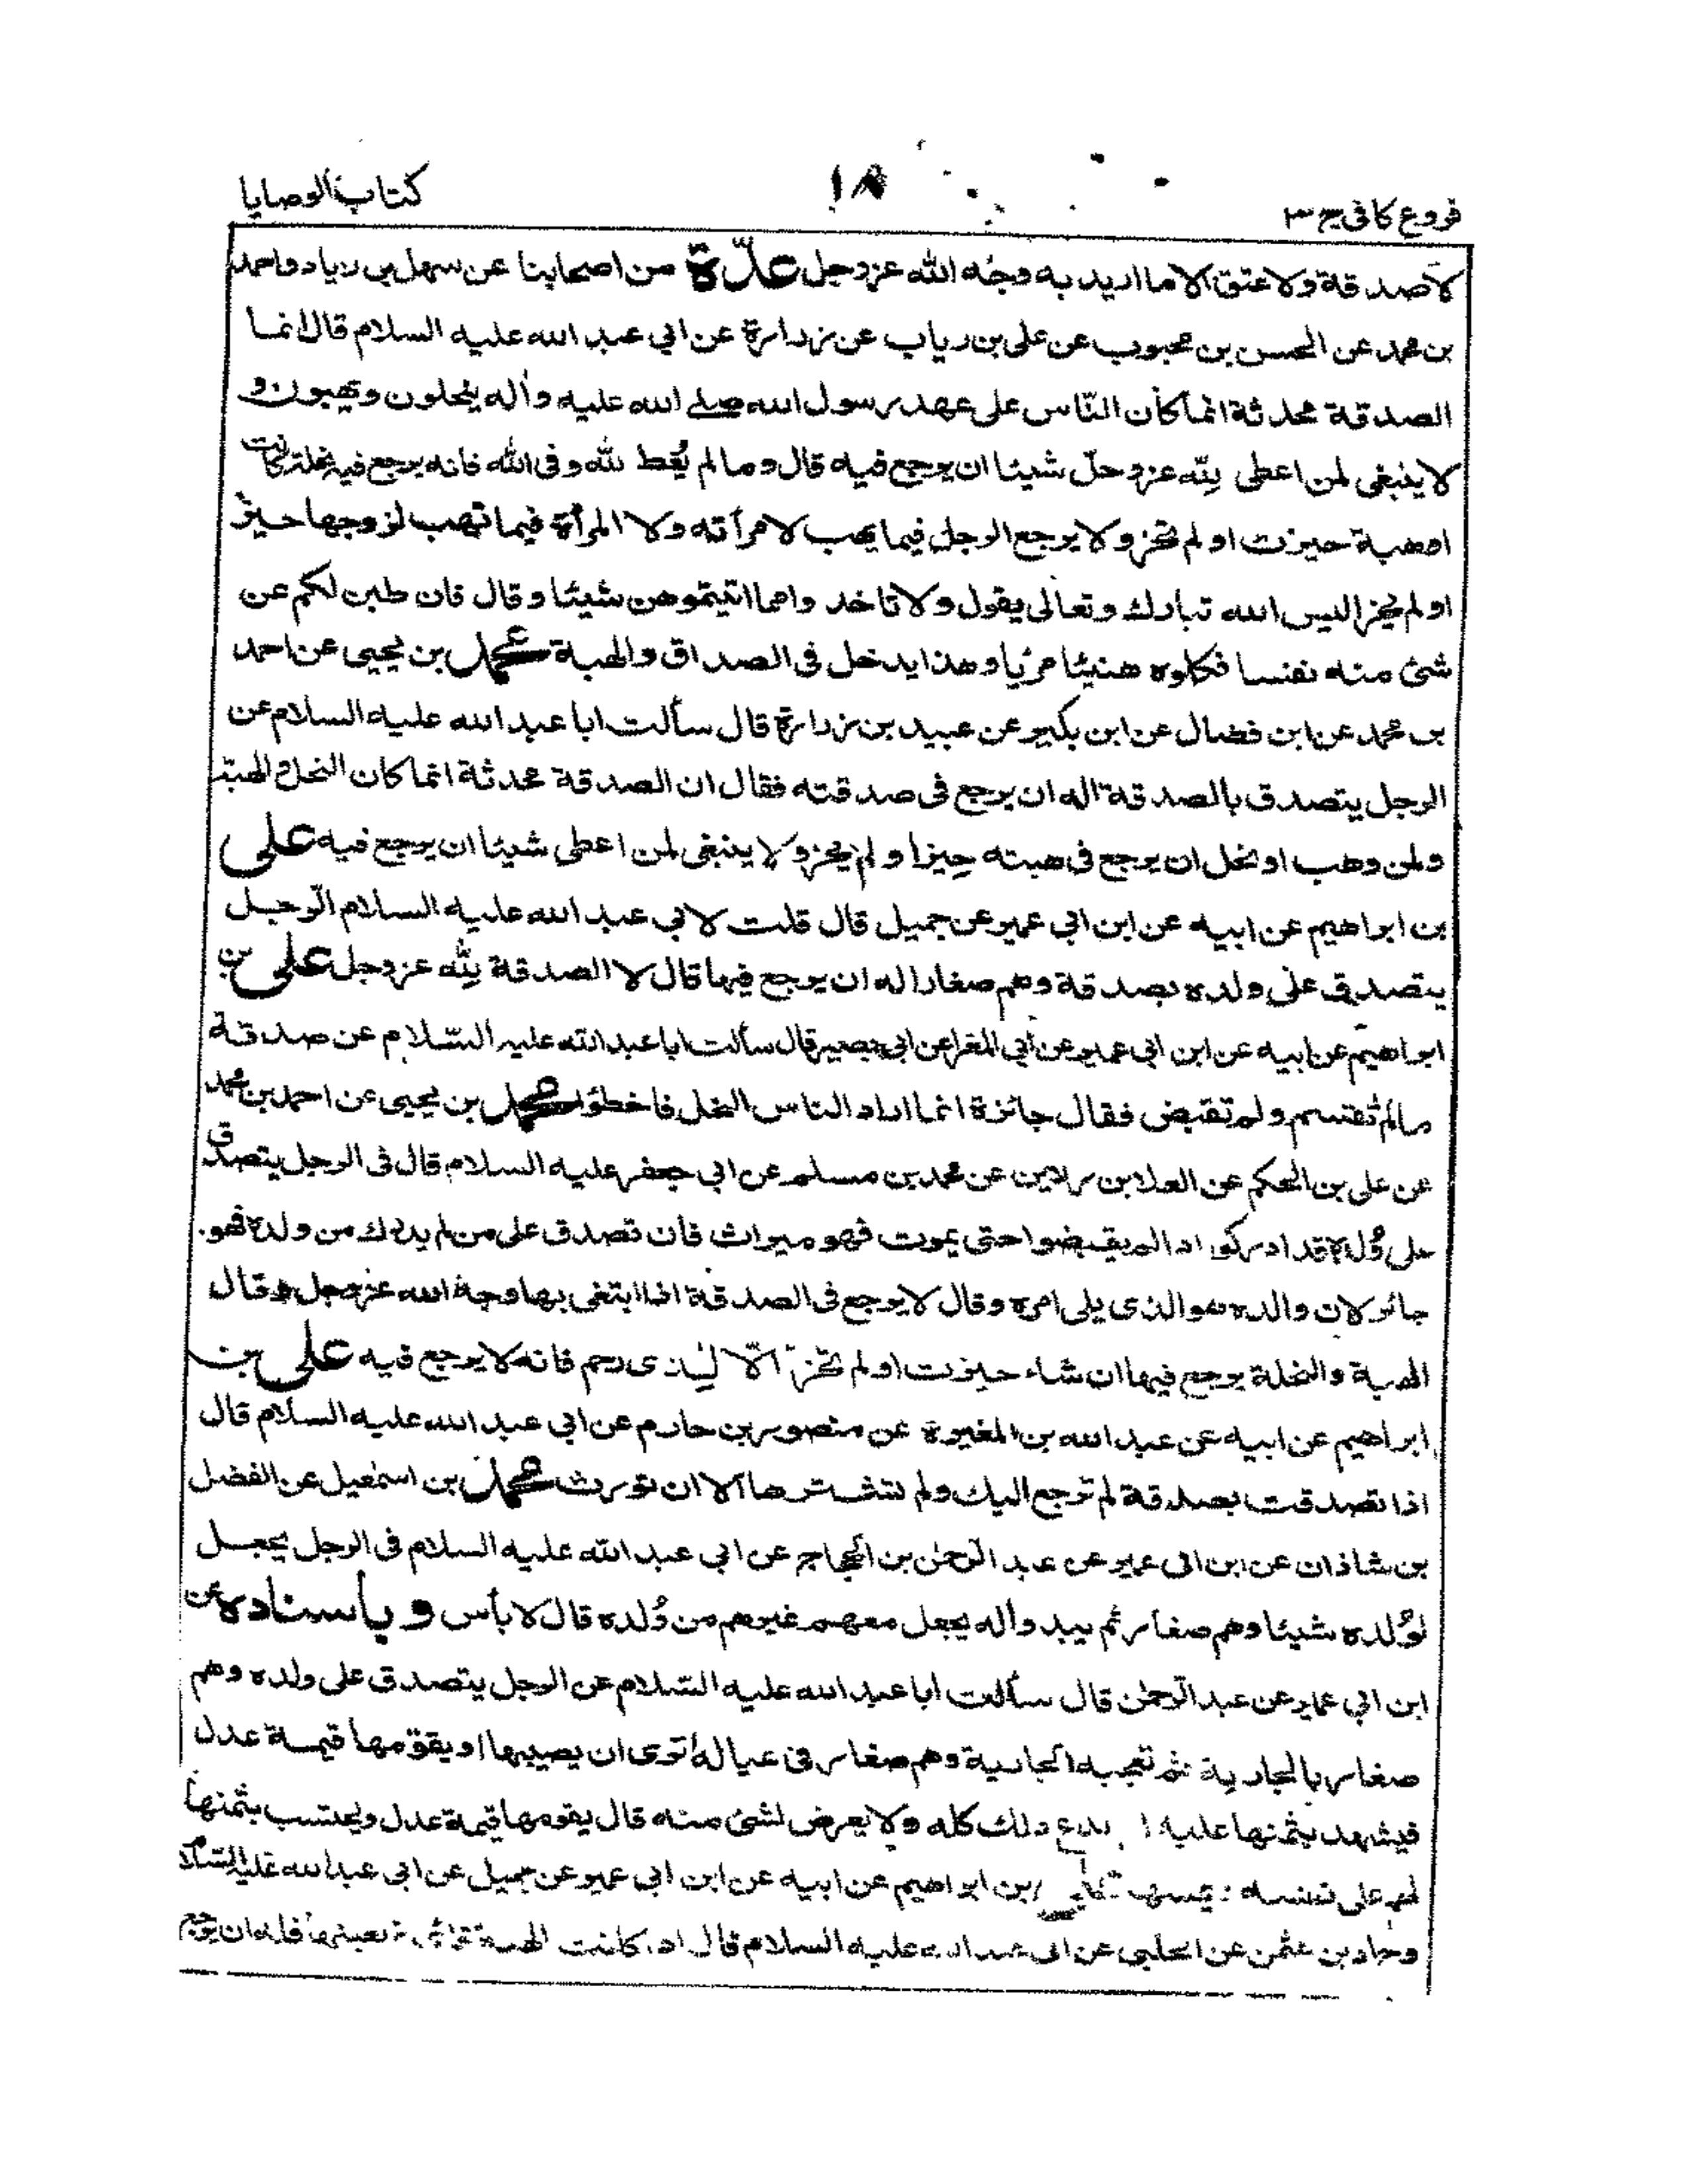 فروع كافى ج ٣
١٨
كتاب الوصايا
لا صدقة ولا عتق الا ما اريد به وجه الله عز وجل عدّة من اصحابنا عن سهل بن زياد واحمد
بن محمد عن الحسن بن محبوب عن على بن رياب عن زرارة عن ابي عبد الله عليه السلام قال انما
الصدقة محدثة انما كان النّاس على عهد رسول الله صلى الله عليه وآله ينحلون ويهبون و
لا ينبغى لمن اعطى لِلّه عز وجلّ شيئا ان يرجع فيه قال وما لم يُعْط لله وفى الله فانه يرجع فيه نحلة كانت
او هبة حيزت او لم تحز ولا يرجع الرجل فيما يهب لامرأته ولا المرأة فيما تهب لزوجها حيز
او لم يحز اليس الله تبارك وتعالى يقول ولا تاخذ واعما اتيتموهن شيئا وقال فان طبن لكم عن
شئ منه نفسا فكلوه هنيئا مرئيا وهذا يدخل فى الصداق والهبة محمد بن يحيى عن احمد
بن محمد عن ابن فضال عن ابن بكير عن عبيد بن زرارة قال سألت ابا عبد الله عليه السلام عن
الرجل يتصدق بالصدقة اله ان يرجع فى صدقته فقال ان الصدقة محدثة انما كان النحل والهبة
ولمن وهب او نحل ان يرجع فى هبته حِيز او لم يحز ولا ينبغى لمن اعطى شيئا ان يرجع فيه على
بن ابراهيم عن ابيه عن ابن ابي عمير عن جميل قال قلت لابي عبد الله عليه السلام الرّجل
يتصدق على ولده بصدقة وهم صغار اله ان يرجع فيها قال لا الصدقة لِلّه عز وجل على بن
ابراهيم عن ابيه عن ابن ابى عمير عن ابي المغرا عن ابي بصير قال سألت ابا عبد الله عليه السّلام عن صدقة
مالم تقسم ولم تقبض فقال جائزة انما اراد الناس النحل فاخطؤا محمد بن يحيى عن احمد بن محمد
عن على بن الحكم عن العلا بن رزين عن محمد بن مسلم عن ابي جعفر عليه السلام قال فى الرجل يتصدق
على وُلده قد ادركوا اذا لم يقبضوا حتى يموت فهو ميراث فان تصدق على من لم يدرك من ولده فهو
جائز لان والده هو الذى يلى امره وقال لا يرجع فى الصدقة اذا ابتغى بها وجه الله عز وجل وقال
الهبة والنحلة يرجع فيها ان شاء حيزت او لم تحز الّا لِذى رحم فانه لا يرجع فيه على بن
ابراهيم عن ابيه عن عبد الله بن المغيرة عن منصور بن حازم عن ابي عبد الله عليه السلام قال
اذا تصدقت بصدقة لم ترجع اليك ولم تشترها الا ان تورث محمد بن اسمعيل عن الفضل
بن شاذان عن ابن ابى عمير عن عبد الرّحمٰن بن الحجاج عن ابي عبد الله عليه السلام فى الرجل يجعل
لوُلده شيئا وهم صغار ثم يبدو اله يجعل معهم غيرهم من وُلده قال لا بأس وباسناده عن
ابن ابي عمير عن عبد الرّحمٰن قال سألت ابا عبد الله عليه السّلام عن الرجل يتصدق على ولده وهم
صغار بالجارية ثم تعجبه الجارية وهم صغار فى عياله أترى ان يصيبها او يقوّمها قيمة عدل
فيشهد بثمنها عليه ا يدع ذلك كله ولا يعرض لشئ منه قال يقومها قيمة عدل ويحتسب بثمنها
لهم على نفسه ويمسها على بن ابراهيم عن ابيه عن ابن ابي عمير عن جميل عن ابى عبد الله عليه السّلام
وحماد بن عثمن عن الحلبى عن ابى عبد الله عليه السلام قال اذا كانت الهبة قائمة بعينها فله ان يرجع